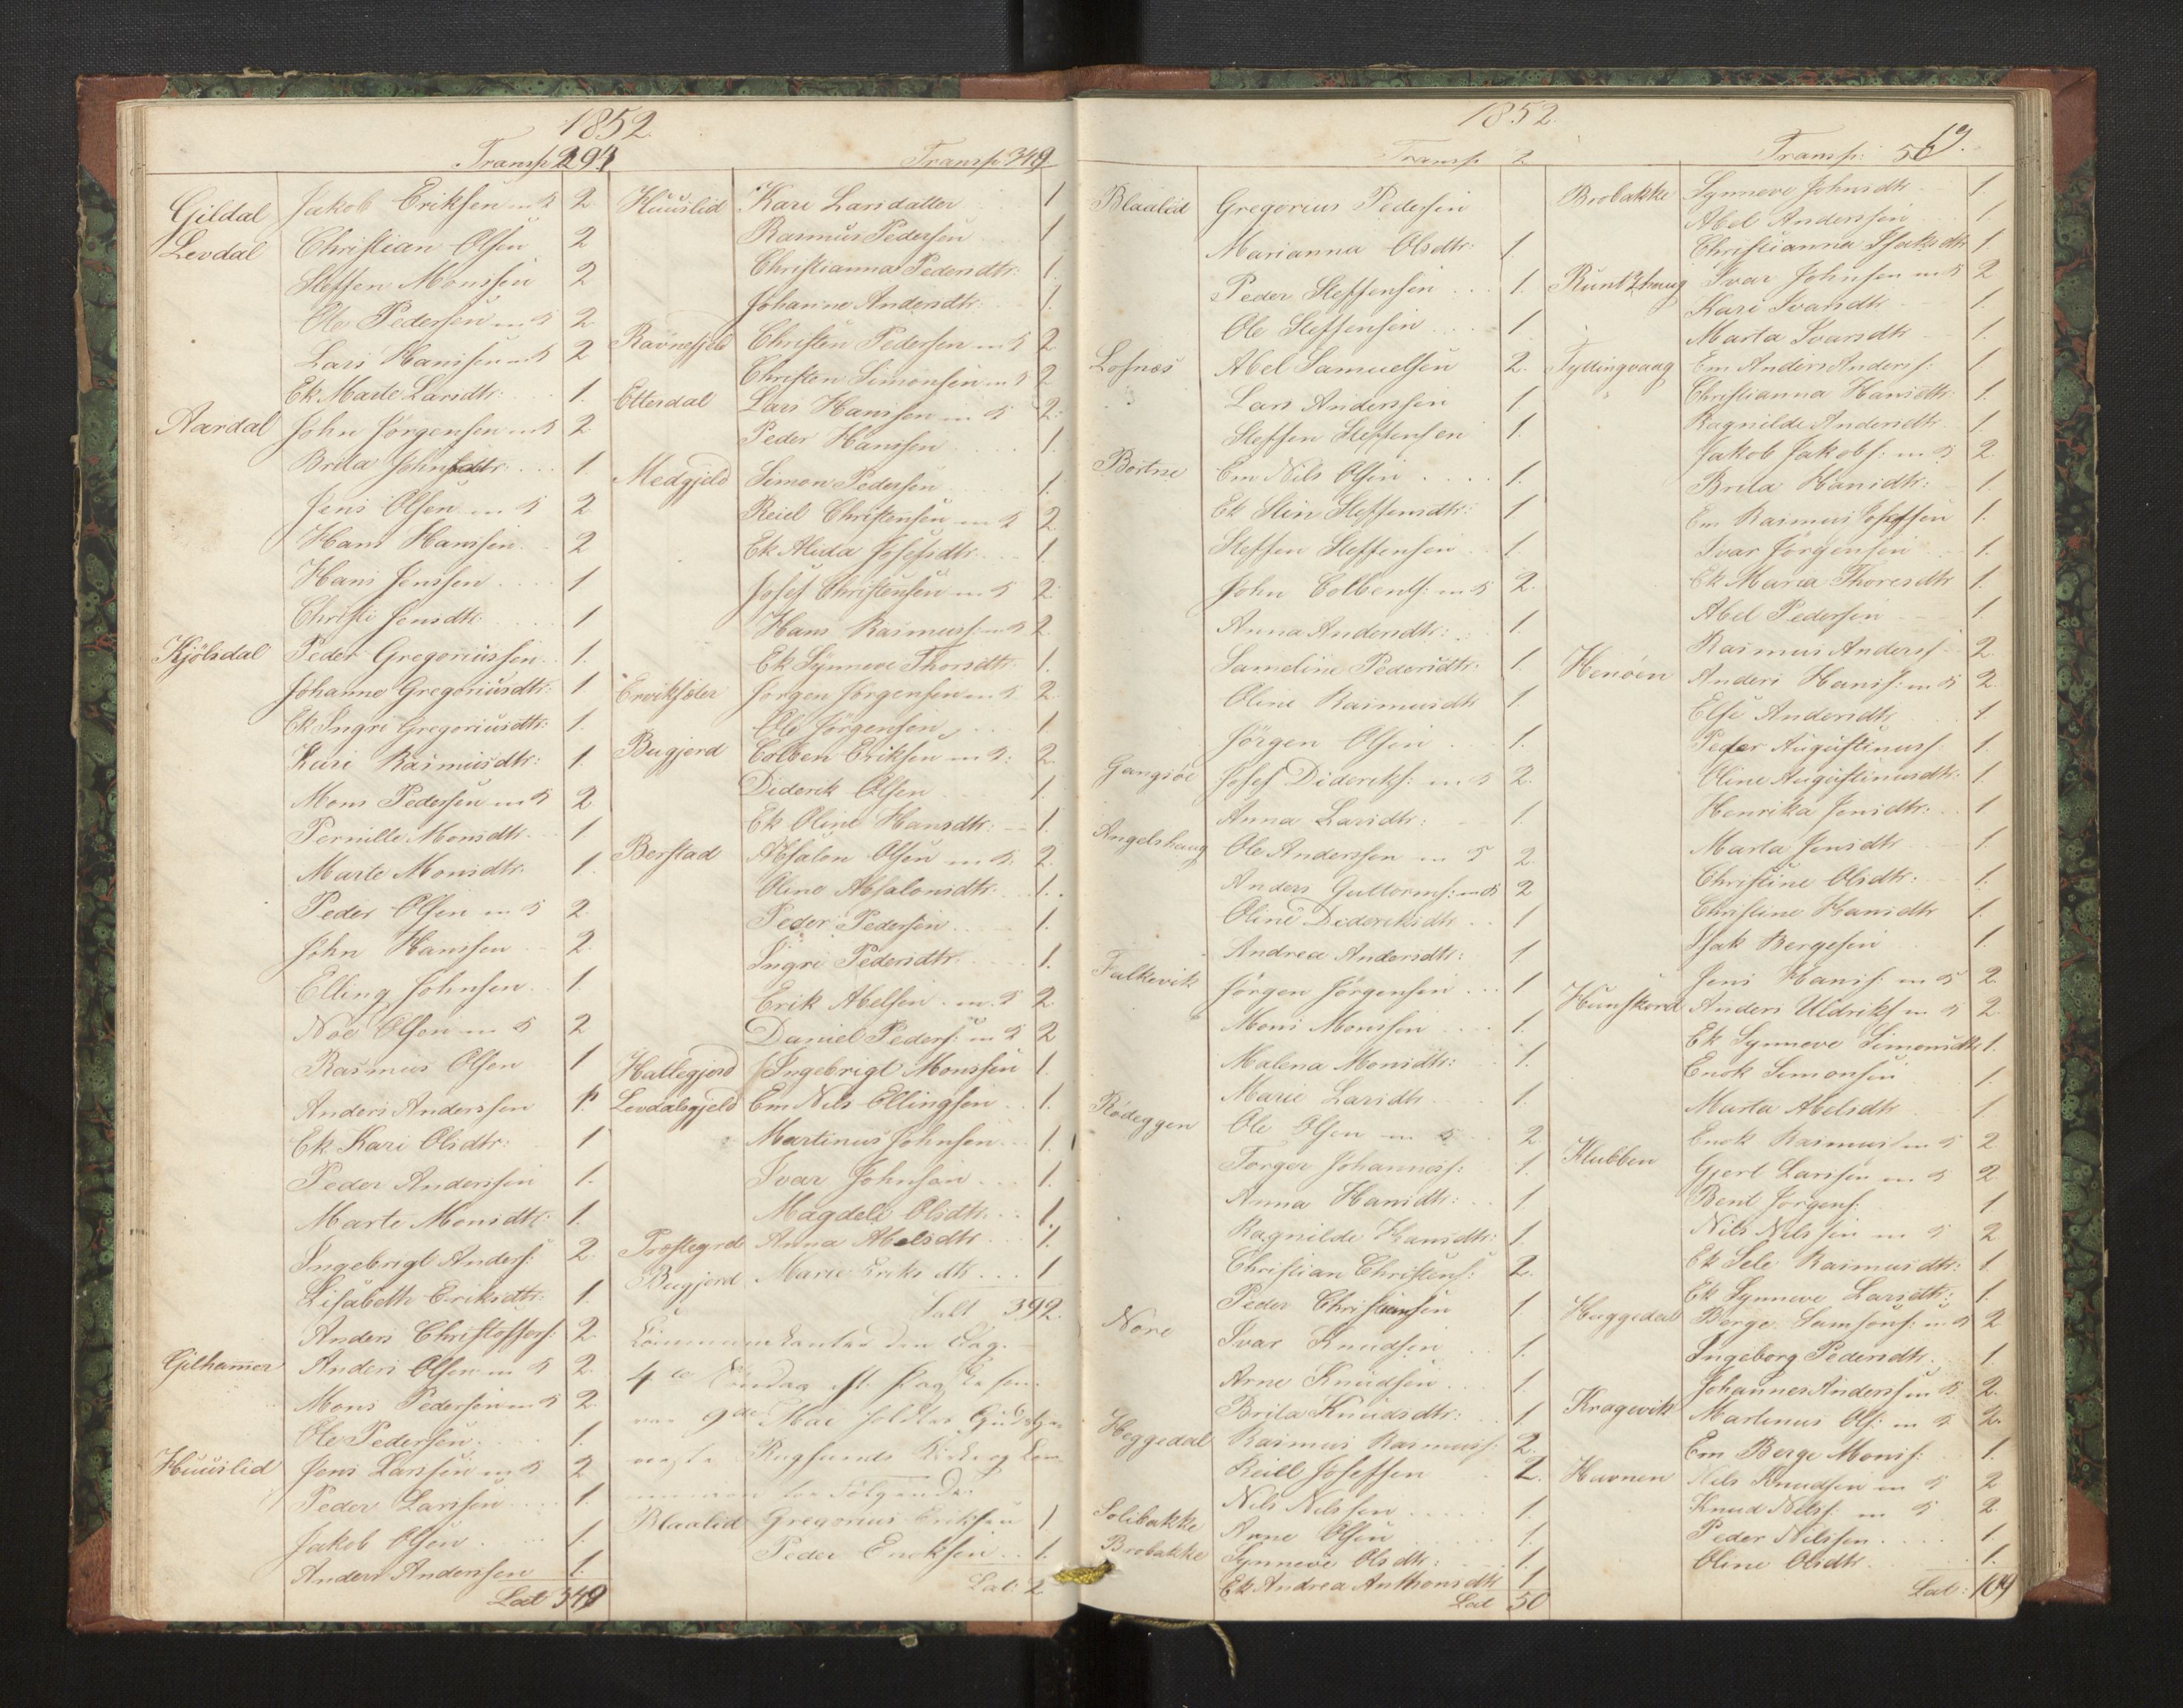 1852.
Transp 294
Gildal Jakob Eriksen m K 2
Levdal Christian Olsen 2
Steffen Monssen 2
Ole Pedersen m K 2
Lars Hanssen m K 2
Ek Marte Larsdtr: 1.
Aardal John Jörgensen m K 2
Brita Johnsdtr. 1.
Jens Olsen m K 2
Hans Hanssen. 2
Hans Jenssen 1
Christi Jensdtr. 1
Kjölsdal Peder Gregoriussen 1.
Johanne Gregoriusdtr: 1
Ek Ingri Gregoriusdtr: 1.
Kari Rasmusdtr: 1.
Mons Pedersen m K 2
Pernille Monsdtr. 1
Marte Monsdtr. 1.
Peder Olsen m K 2.
John Hanssen 2.
Elling Johnsen 1
Noe Olsen m K 2
Rasmus Olsen 1
Anders Anderssen 1.
Ek Kari Olsdtr: 1
Peder Anderssen 1.
Marte Monsdtr: 1.
Ingebrigt Anders: 2.
Lisabeth Eriksdtr: 1.
Anders Christoffers: 2.
Gilhamer Anders Olsen m K 2.
Mons Pedersen m K 2.
Ole Pedersen 1.
Huuslid Jens Larssen m K 2
Peder Larssen 1.
Jakob Olsen 1.
Anders Anderssen 1.
Lat 349
Transp: 349
Huuslid Kari Larsdatter 1
Rasmus Pedersen 1
Christianna Pedersdtr: 1.
Johanne Andersdtr. 1.
Ravnefjeld Christen Pedersen m K 2
Christen Simonsen m K 2
Ettesdal Lars Hanssen m K 2.
Peder Hanssen 1.
Medgjeld Simon Pedersen 1.
Reiel Christensen m K 2
Ek Alida Josefsdtr. 1.
Josef Christensen m K 2.
Hans Rasmuss: m K 2
Ek Synneve Thorsdtr. 1.
Ervikseter Jörgen Jörgensen m K 2.
Ole Jörgensen 1
Bugjerd Colben Eriksen m K: 2.
Diderik Olsen 1.
Ek Oline Hansdtr: 1.
Berstad Absalon Olsen m K. 2.
Oline Absalonsdtr. 1.
Peder Pedersen 1.
Ingri Pedersdtr. 1.
Erik Abelsen m. K 2
Daniel Peders: m K 2
Hallegjerd Ingebrigt Monssen 1.
Levdalsgjeld Em Nils Ellingsen 1.
Martinus Johnsen 1.
Ivar Johnsen 1.
Magdele Olsdtr. 1.
Præstegrd Anna Abelsdtr 1.
Bugjerd Marie Eriksdtr 1
Talt 392.
4de Söndag eft. Paaske som
var 9de Mai holdtes Gudstje-
neste Rugsunds Kirke og Com-
munion for Følgende:
Blaalid Gregorius Eriksen 1
Peder Enoksen 1.
Lat: 2
1852.
19.
Transp 2
Blaalid Gregorius Pedersen
Marianna Olsdtr: 1.
Peder Steffensen 1.
Ole Steffensen 1
Losnæs Abel Samuelsen 2.
Lars Anderssen 1
Steffen Steffensen 1.
Bortne Em Nils Olsen 1.
Ek Stin Steffensdtr: 1.
Steffen Steffensen 1.
John Colbens: m K 2.
Anna Andersdtr: 1.
Sameline Pedersdtr. 1.
Oline Rasmusdtr 1.
Jörgen Olsen 1.
Gangsöe Josef Dideriks: m K 2.
Anna Larsdtr: 1.
Angelshaug Ole Anderssen m K 2
Anders Guttorms: m K 2
Oline Dideriksdtr 1
Andrea Andersdtr: 1
Falkevik Jörgen Jörgensen 1
Mons Monssen 1.
Malena Monsdtr: 1.
Marie Larsdtr 1.
Rödeggen Ole Olsen m K 2
Torger Johanness: 1.
Anna Hansdtr: 1
Ragnilde Hansdtr: 1.
Christian Christens: 2.
Peder Christiansen 1.
Nore Ivar Knudsen 1.
Arne Knudsen 1.
Brita Knudsdtr: 1.
Heggedal Rasmus Rasmuss: 2.
Reiel Josefsen 2.
Nils Nilssen 1.
Solibakke Arne Olsen 1.
Brobakke Synneve Olsdtr: 1.
Ek Andrea Anthonsdtr 1
Lat 50
Transp: 50
Brobakke Synneve Johnsdtr 1.
Abel Anderssen 1.
Christianna Isaksdtr 1.
Runtzhaug Ivar Johnsen m K 2
Kari Ivarsdtr 1.
Marta Ivarsdtr 1.
Tyttingvaag Em Anders Anders: 1
Christianna Hansdtr: 1.
Ragnilde Andersdtr. 1
Jakob Jakobs: m K 2
Brita Hansdtr: 1.
Em Rasmus Josefsen 1.
Ivar Jörgensen 1.
Ek Maria Thoresdtr 1.
Abel Pedersen 1.
Rasmus Anders: 2
Henöen Anders Hans: m K 2.
Else Andersdtr 1
Peder Augustinuss 1.
Oline Augustinusdtr: 1.
Henrika Jensdtr: 1
Marta Jensdtr 1
Christine Olsdtr: 1.
Christine Hansdtr 1.
Isak Bergesen 1.
Jens Hans: m K 2
Hunskord Anders Uldriks m K 2
Ek Synneve Simonsdtr 1.
Enok Simonsen 1.
Marta Abelsdtr 1
Enok Rasmus m K 2
Klubben Gjert Larssen m K 2
Bent Jörgens: 1
Nils Nilssen m K 2
Ek Sele Rasmusdtr: 1
Ek Synneve Larsdtr: 1.
Heggedal Berge Samsons: m K 2
Ingeborg Pedersdtr: 1.
Johannes Anderssen K 2.
Kragevik Martinus Ols: m K 2
Em Berge Monss: 1.
Havnen Nils Knudsen m K 2
Knud Nilss m K 2.
Peder Nilssen 1
Oline Olsdtr 1.
Lat: 109